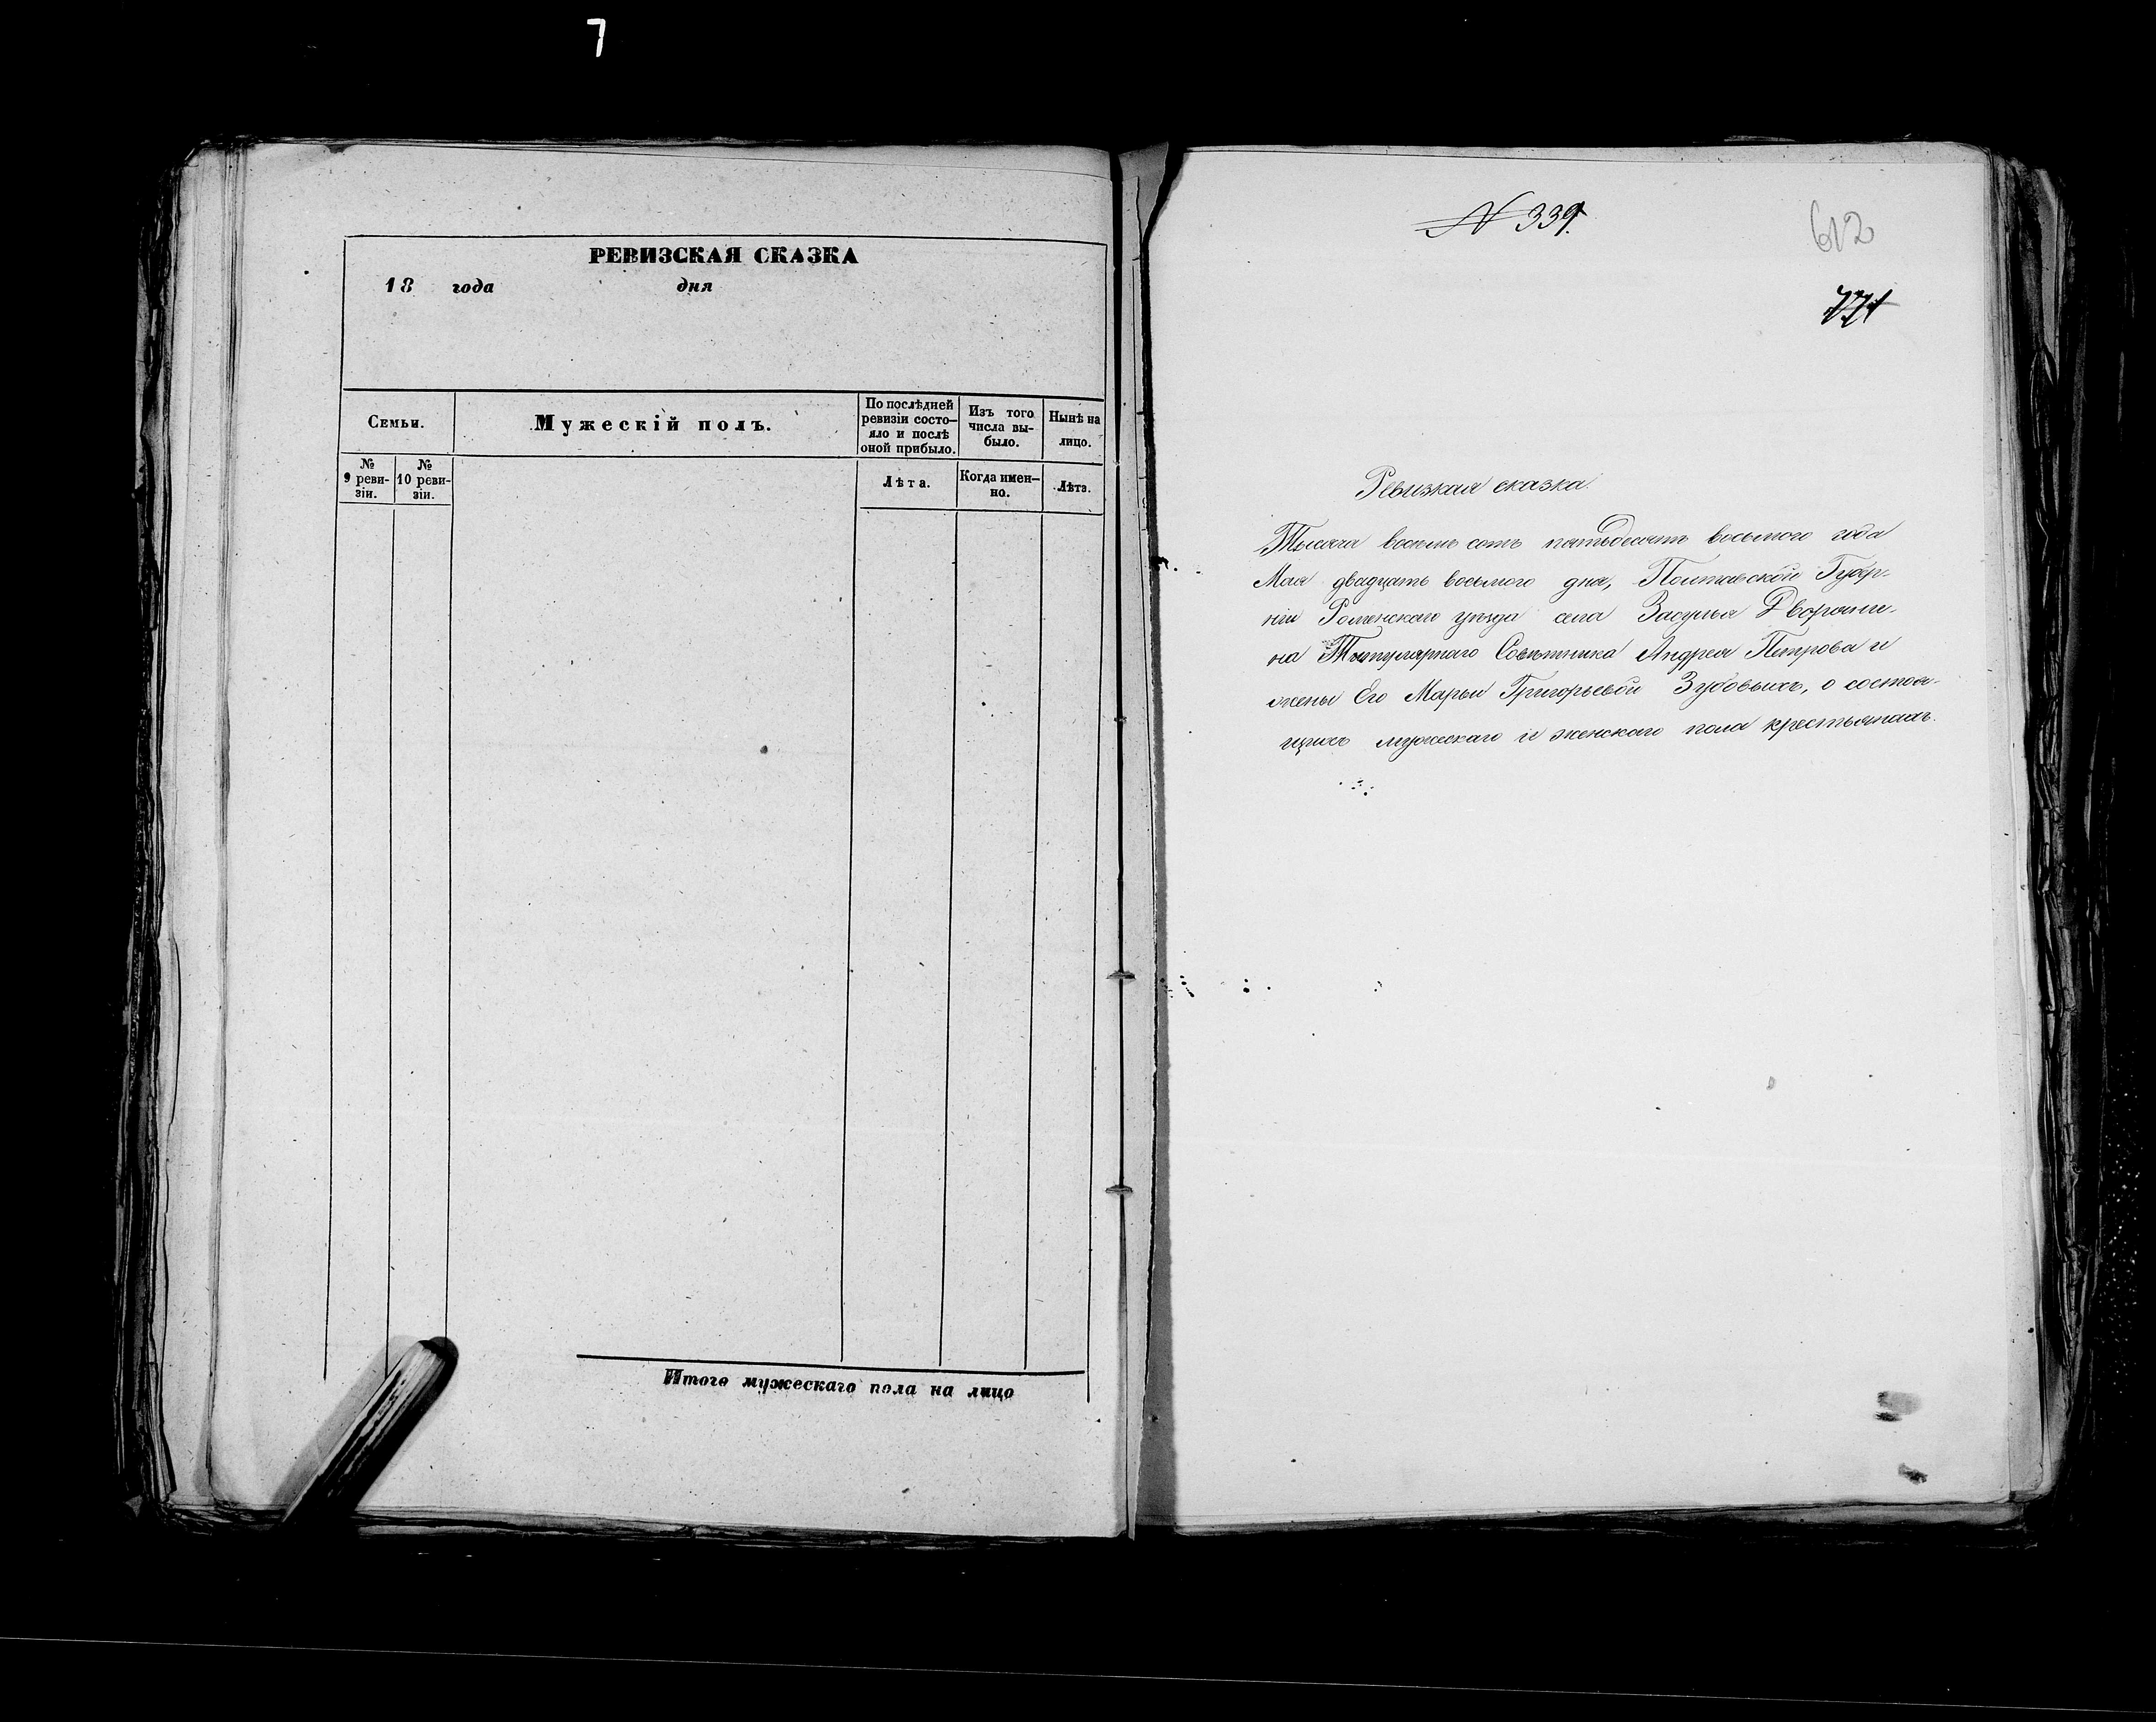 7
РЕВИЗСКАЯ СКАЗКА
18 года дня
Семьи.
Мужескій полъ.
По послѣдней ревизіи состо-
яло и послѣ
оной прибыло.
Изъ того
числа вы-
было.
Нынѣ на
лицо.
№
9 реви-
зіи.
№
10 реви-
зіи.
Лѣта.
Когда имен-
но.
Лѣта.
Итого мужескаго пола на лицо
N 339.
612
771
Ревизкая сказка.
Тысяча восемь сотъ пятьдесятъ восьмого года
Мая двадцать восьмого дня, Полтавской Губер-
ніи Роменскаго уѣзда села Засулья Дворяни-
на Титулярнаго Совѣтника Андрея Петрова и
жены Его Марьи Григорьевой Зубовыхъ, о состоя-
щихъ мужескаго и женскаго пола крестьянахъ.